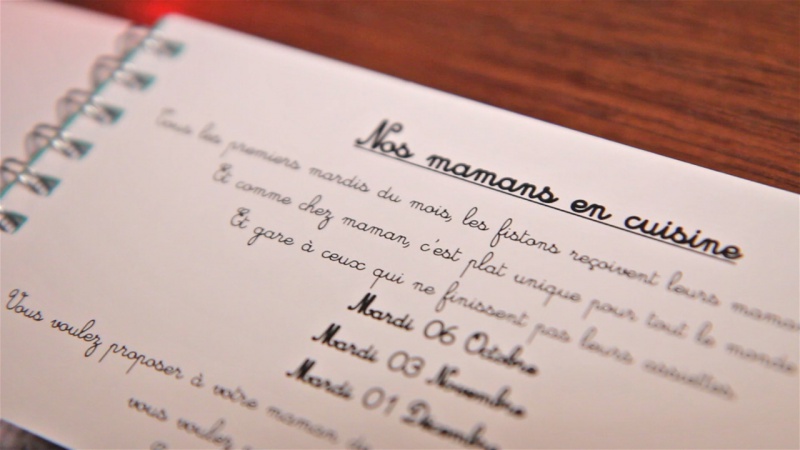 Nos mamans en cuisine
Tous les premiers mardis du mois, les fistons reçoivent leurs
Et comme chez maman, c'est plat unique pour tout le monde
Et gare à ceux qui ne finissent pas leurs assiettes.
Mardi 06 Octobre
Mardi 03 Novembre
Mardi 01 Décembre
Vous voulez proposer à votre maman
vous voulez